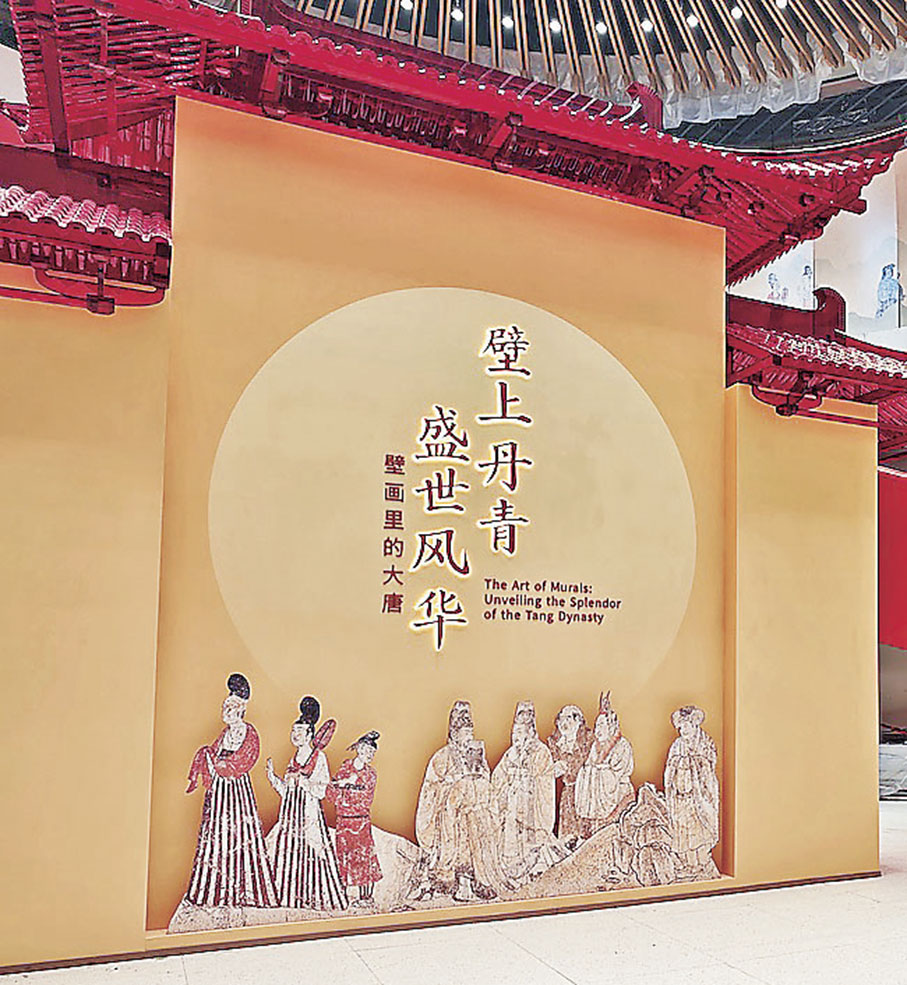 壁上丹青
盛世风华
壁画里的大唐
The Art of Murals:
Unveiling the Splendor
of the Tang Dynasty